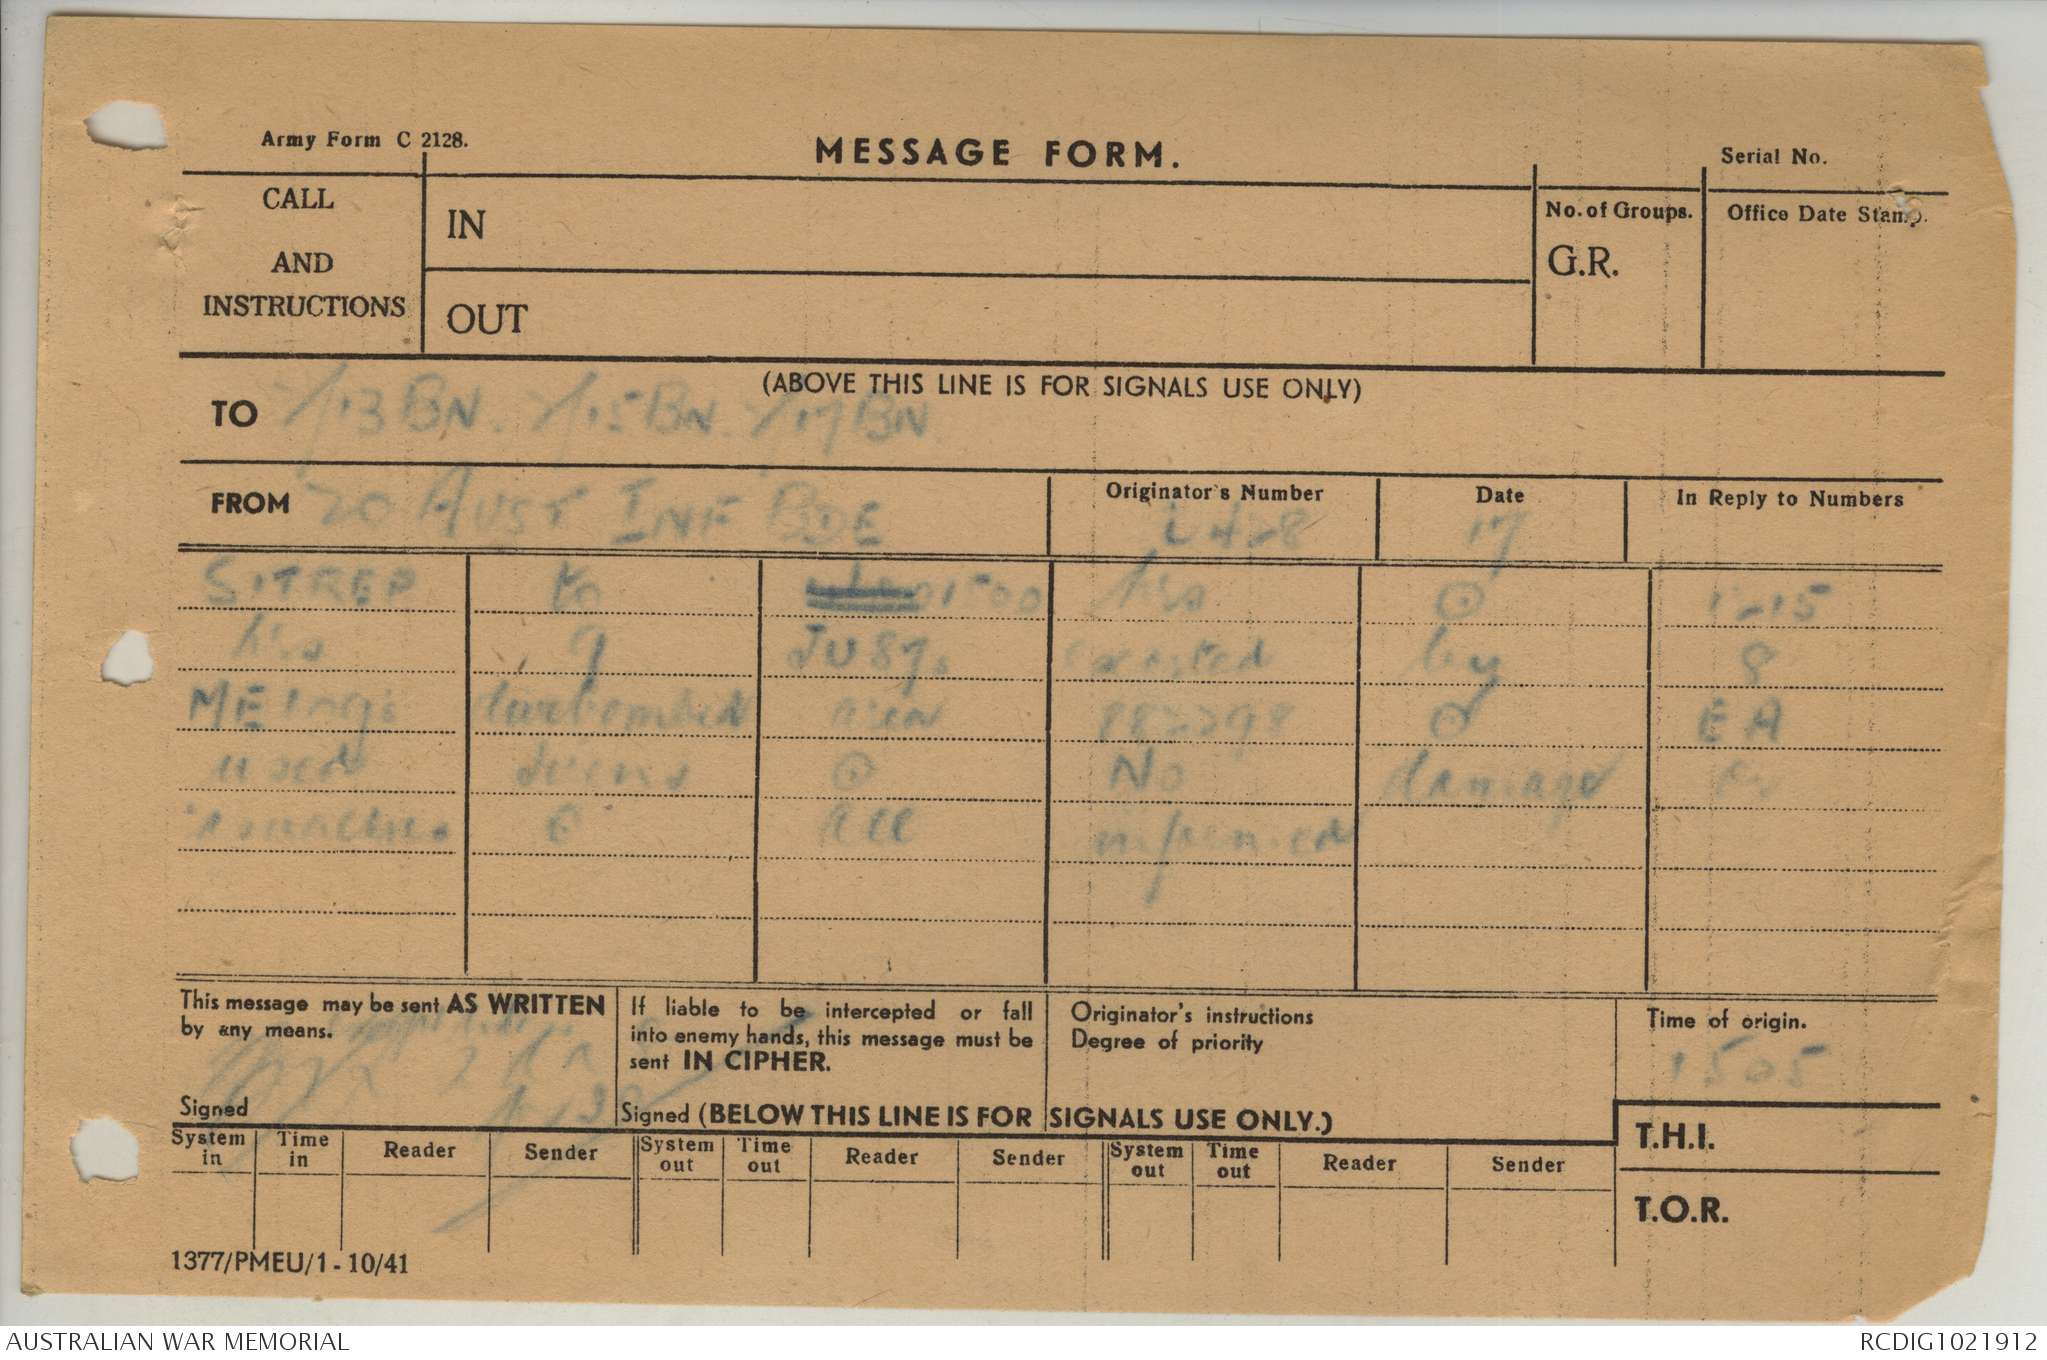 Army Form C 2128.
MESSAGE FORM.
Serial No.
CALL
AND
INSTRUCTIONS
IN
OUT
No. of Groups.
G.R.
Office Date Stamp.
(ABOVE THIS LINE IS FOR SIGNALS USE ONLY)
TO 2/13 BN. 2/15 BN. 2/17 BN
FROM 20 AUST INF BDE
Originator's Number
L428
Date
17
In Reply to Numbers
SITREP to 1500 hrs ⊙ 1215
hrs 9 JU 87s escorted by 8
ME 109s area 882298 ⊙ EA
used ⊙ No damage
all informed
This message may be sent AS WRITTEN
by any means.
Signed
If liable to be intercepted or fall
into enemy hands, this message must be
sent IN CIPHER.
Signed (BELOW THIS LINE IS FOR SIGNALS USE ONLY.)
Originator's instructions
Degree of priority
Time of origin.
1505
T.H.I.
T.O.R.
System in
Time in
Reader
Sender
System out
Time out
Reader
Sender
System out
Time out
Reader
Sender
1377/PMEU/1 - 10/41
AUSTRALIAN WAR MEMORIAL
RCDIG1021912